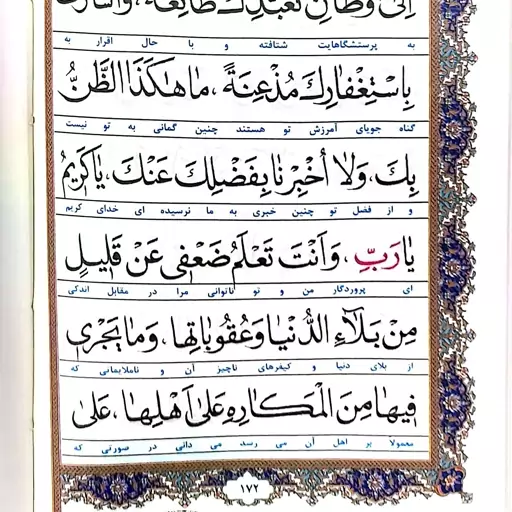 إلى أوطان تعبدك طائعة، وأشارت
به پرستشگاهایت شتافته و با حال اقرار به
بِاسْتِغْفارِكَ مُذْعِنَةً، ما هكَذَا الظَّنُّ
گناه جویای آمرزش تو هستند چنین گمانی به تو نیست
بِكَ، وَلا اُخْبِرْنا بِفَضْلِكَ عَنْكَ، يا كَريمُ
و از فضل تو چنین خبری به ما نرسیده ای خدای کریم
يا رَبِّ، وَاَنْتَ تَعْلَمُ ضَعْفى عَنْ قَليلٍ
ای پروردگار من و تو ناتوانی مرا در مقابل اندکی
مِنْ بَلاۤءِ الدُّنْيا وَعُقُوباتِها، وَما يَجْرى
از بلای دنیا و کیفرهای ناچیز آن و ناملایماتی که
فيها مِنَ الْمَكارِهِ عَلى اَهْلِها، عَلى
معمولا بر اهل آن می رسد می دانی در صورتی که
۱۷۲